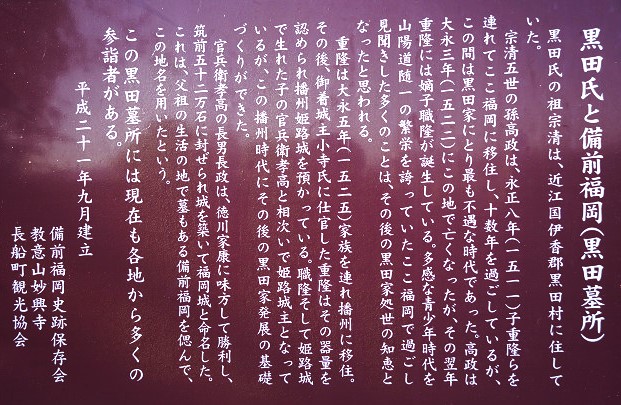 黒田氏と備前福岡(黒田墓所)
黒田氏の祖宗清は、近江国伊香郡黒田村に住して
いた。
宗清五世の孫高政は、永正八年(一五一一)子重隆らを
連れてここ福岡に移住し、十数年を過ごしているが、
この間は黒田家にとり最も不遇な時代であった。高政は
大永三年(一五二三)にこの地で亡くなったが、その翌年
重隆には嫡子職隆が誕生している。多感な青少年時代を
山陽道随一の繁栄を誇っていたここ福岡で過ごし
見聞きした多くのことは、その後の黒田家処世の知恵と
なったと思われる。
重隆は大永五年(一五二五)家族を連れ播州に移住。
その後、御着城主小寺氏に仕官した重隆はその器量を
認められ播州姫路城を預かっている。職隆そして姫路城
で生れた子の官兵衛孝高と相次いで姫路城主となって
いるが、この播州時代にその後の黒田家発展の基礎
づくりができた。
官兵衛孝高の長男長政は、徳川家康に味方して勝利し、
筑前五十二万石に封ぜられ城を築いて福岡城と命名した。
これは、父祖の生活の地で墓もある備前福岡を偲んで、
この地名を用いたという。
この黒田墓所には現在も各地から多くの
参詣者がある。
平成二十一年九月建立
備前福岡史跡保存会
教意山妙興寺
長船町観光協会